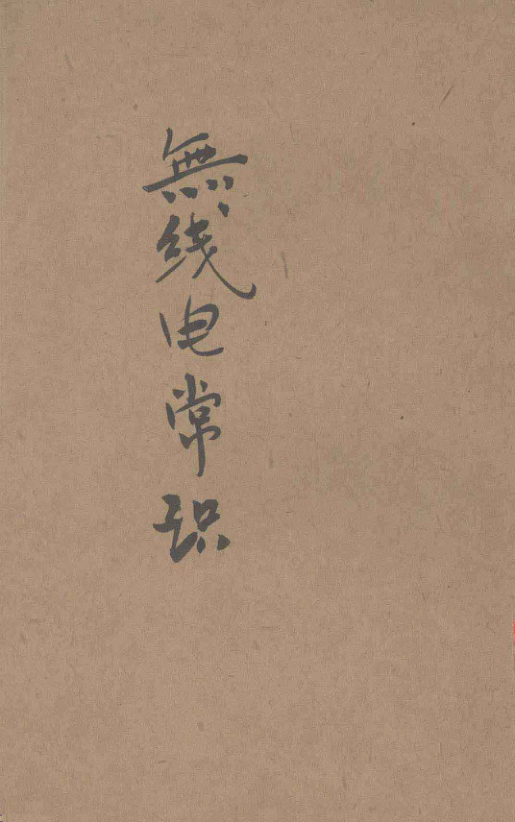 無线电常识